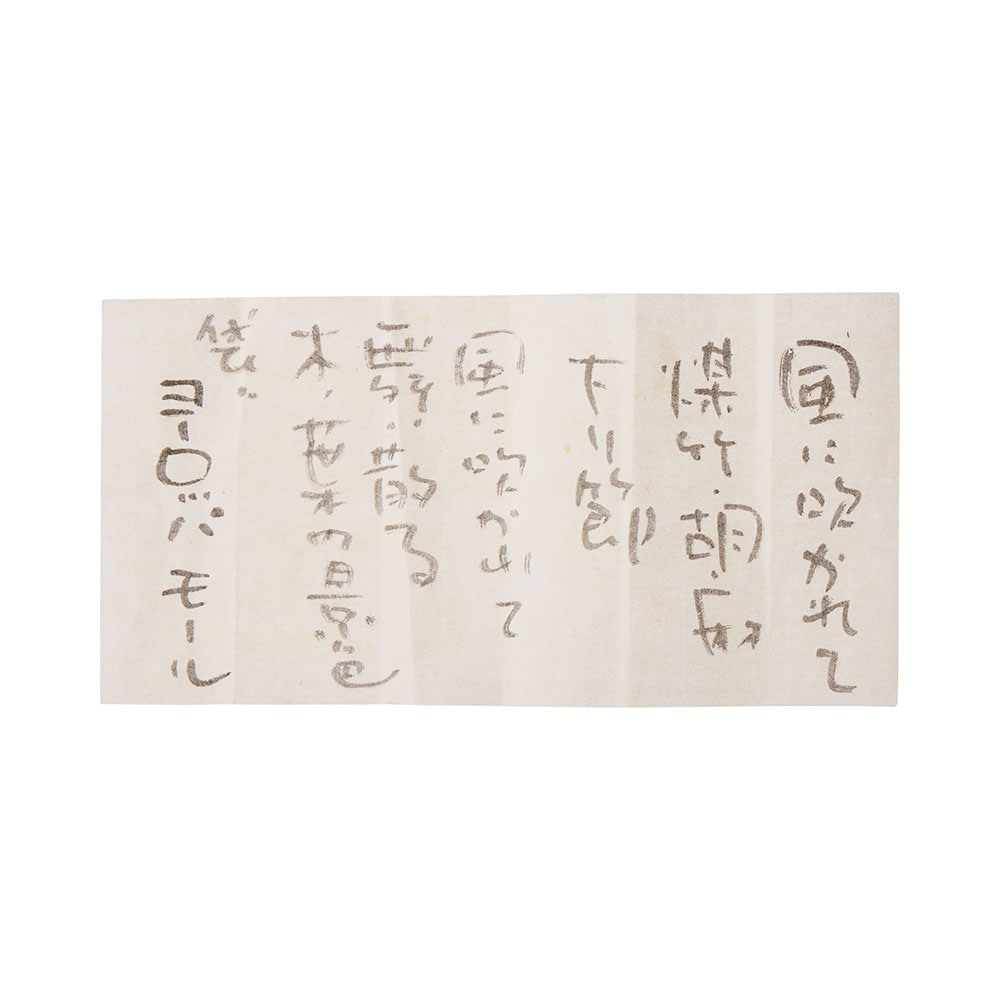 風に吹かれて
煤竹・胡麻
下り節
風に吹かれて
舞・散る
木・葉の景色
袋・
ヨーロッパモール